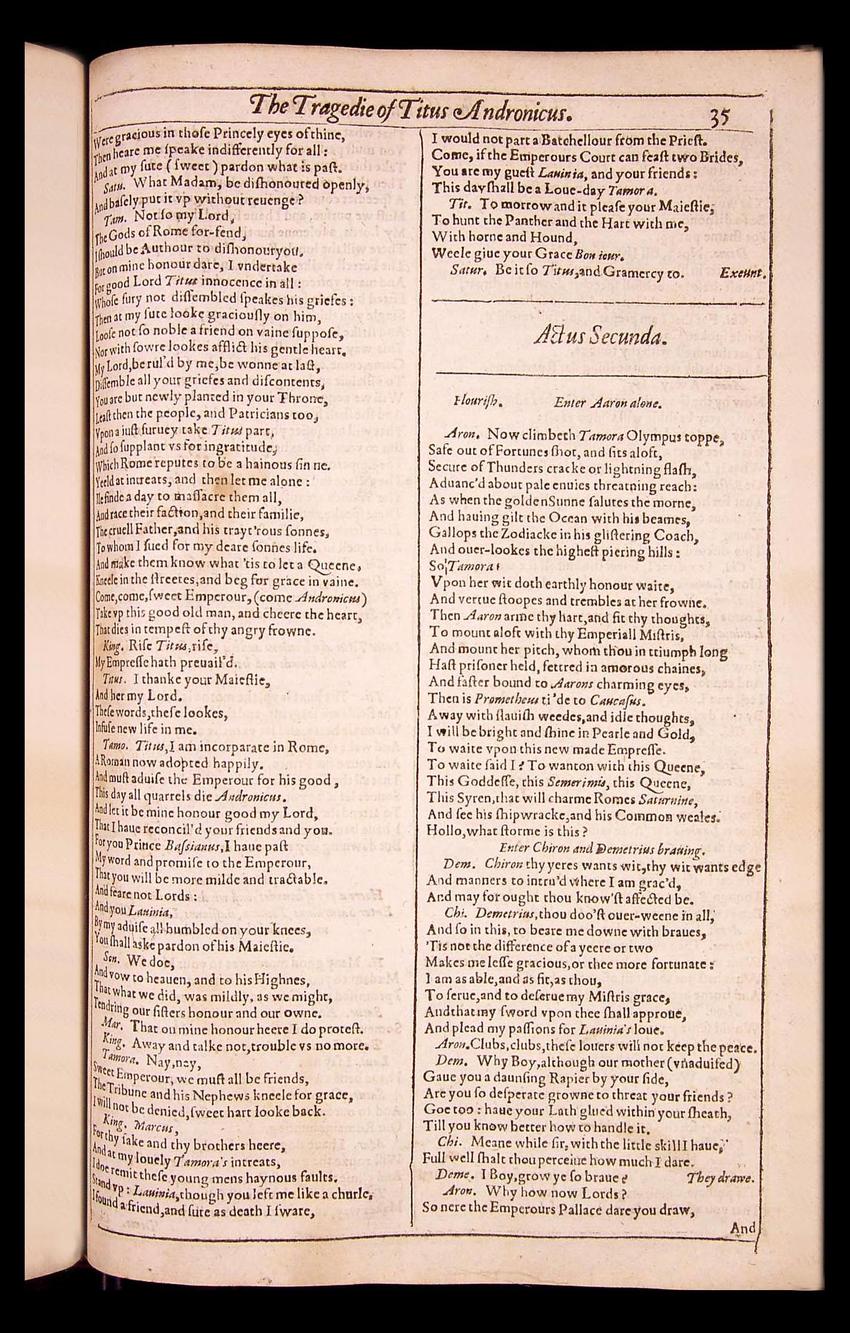 The Tragedie of Titus Andronicus.
35
Were gracious in thoſe Princely eyes of thine,
Then heare me ſpeake indifferently for all :
And at my ſute (ſweet) pardon what is paſt.
Satu. What Madam, be diſhonoured openly,
And baſely put it vp without reuenge ?
Tam. Not ſo my Lord,
The Gods of Rome for-fend,
I ſhould be Authour to diſhonour you.
But on mine honour dare, I vndertake
For good Lord Titus innocence in all :
Whoſe fury not diſſembled ſpeakes his griefes :
Then at my ſute looke graciouſly on him,
Looſe not ſo noble a friend on vaine ſuppoſe,
Nor with ſowre lookes afflict his gentle heart.
My Lord,be rul'd by me,be wonne at laſt,
Diſſemble all your griefes and diſcontents,
You are but newly planted in your Throne,
Leaſt then the people, and Patricians too,
Vpon a iuſt ſuruey take Titus part,
And ſo ſupplant vs for ingratitude,
Which Rome reputes to be a hainous ſinne.
Yeeld at intreats, and then let me alone :
Ile finde a day to maſſacre them all,
And race their faction,and their familie,
The cruell Father,and his trayt'rous ſonnes,
To whom I ſued for my deare ſonnes life.
And make them know what 'tis to let a Queene,
Kneele in the ſtreetes,and beg for grace in vaine.
Come,come,ſweet Emperour, (come Andronicus)
Take vp this good old man, and cheere the heart,
That dies in tempeſt of thy angry frowne.
King. Riſe Titus,riſe,
My Empreſſe hath preuail'd.
Titus. I thanke your Maieſtie,
And her my Lord.
Theſe words,theſe lookes,
Infuſe new life in me.
Tamo. Titus,I am incorparate in Rome,
A Roman now adopted happily.
And muſt aduiſe the Emperour for his good ,
This day all quarrels die Andronicus.
And let it be mine honour good my Lord,
That I haue reconcil'd your friends and you.
For you Prince Baſsianus,I haue paſt
My word and promiſe to the Emperour,
That you will be more milde and tractable.
And feare not Lords :
And you Lauinia,
By my aduiſe all humbled on your knees,
You ſhall aske pardon of his Maieſtie.
Son. We doe,
And vow to heauen, and to his Highnes,
That what we did, was mildly, as we might,
Tendring our ſiſters honour and our owne.
Mar. That on mine honour heere I do proteſt.
King. Away and talke not,trouble vs no more.
Tamora. Nay,nay,
Sweet Emperour, we muſt all be friends,
The Tribune and his Nephews kneele for grace,
I will not be denied,ſweet hart looke back.
King. Marcus,
For thy ſake and thy brothers heere,
And at my louely Tamora's intreats,
I doe remit theſe young mens haynous faults.
Stand vp : Lauinia,though you left me like a churle,
I found a friend,and ſure as death I ſware,
I would not part a Batchellour from the Prieſt.
Come, if the Emperours Court can feaſt two Brides,
You are my gueſt Lauinia, and your friends :
This day ſhall be a Loue-day Tamora.
Tit. To morrow and it pleaſe your Maieſtie,
To hunt the Panther and the Hart with me,
With horne and Hound,
Weele giue your Grace Bon iour.
Satur. Be it ſo Titus,and Gramercy to. Exeunt.
Actus Secunda.
Flouriſh. Enter Aaron alone.
Aron. Now climbeth Tamora Olympus toppe,
Safe out of Fortunes ſhot, and ſits aloft,
Secure of Thunders cracke or lightning flaſh,
Aduanc'd about pale enuies threatning reach :
As when the golden Sunne ſalutes the morne,
And hauing gilt the Ocean with his beames,
Gallops the Zodiacke in his gliſtering Coach,
And ouer-lookes the higheſt piering hills :
So Tamora :
Vpon her wit doth earthly honour waite,
And vertue ſtoopes and trembles at her frowne.
Then Aaron arme thy hart,and fit thy thoughts,
To mount aloft with thy Emperiall Miſtris,
And mount her pitch, whom thou in triumph long
Haſt priſoner held, fettred in amorous chaines,
And faſter bound to Aarons charming eyes,
Then is Prometheus ti'de to Caucaſus.
Away with ſlauiſh weedes,and idle thoughts,
I will be bright and ſhine in Pearle and Gold,
To waite vpon this new made Empreſſe.
To waite ſaid I ? To wanton with this Queene,
This Goddeſſe, this Semerimis, this Queene,
This Syren,that will charme Romes Saturnine,
And ſee his ſhipwracke,and his Common weales.
Hollo,what ſtorme is this ?
Enter Chiron and Demetrius brauing.
Dem. Chiron thy yeres wants wit,thy wit wants edge
And manners to intru'd where I am grac'd,
And may for ought thou know'ſt affected be.
Chi. Demetrius,thou doo'ſt ouer-weene in all,
And ſo in this, to beare me downe with braues,
'Tis not the difference of a yeere or two
Makes me leſſe gracious,or thee more fortunate :
I am as able,and as fit,as thou,
To ſerue,and to deſerue my Miſtris grace,
And that my ſword vpon thee ſhall approue,
And plead my paſſions for Lauinia's loue.
Aron.Clubs,clubs,theſe louers will not keep the peace.
Dem. Why Boy,although our mother (vnaduiſed)
Gaue you a daunſing Rapier by your ſide,
Are you ſo deſperate growne to threat your friends ?
Goe too : haue your Lath glued within your ſheath,
Till you know better how to handle it.
Chi. Meane while ſir, with the little skill I haue,
Full well ſhalt thou perceiue how much I dare.
Deme. I Boy,grow ye ſo braue ? They drawe.
Aron. Why how now Lords ?
So nere the Emperours Pallace dare you draw,
And